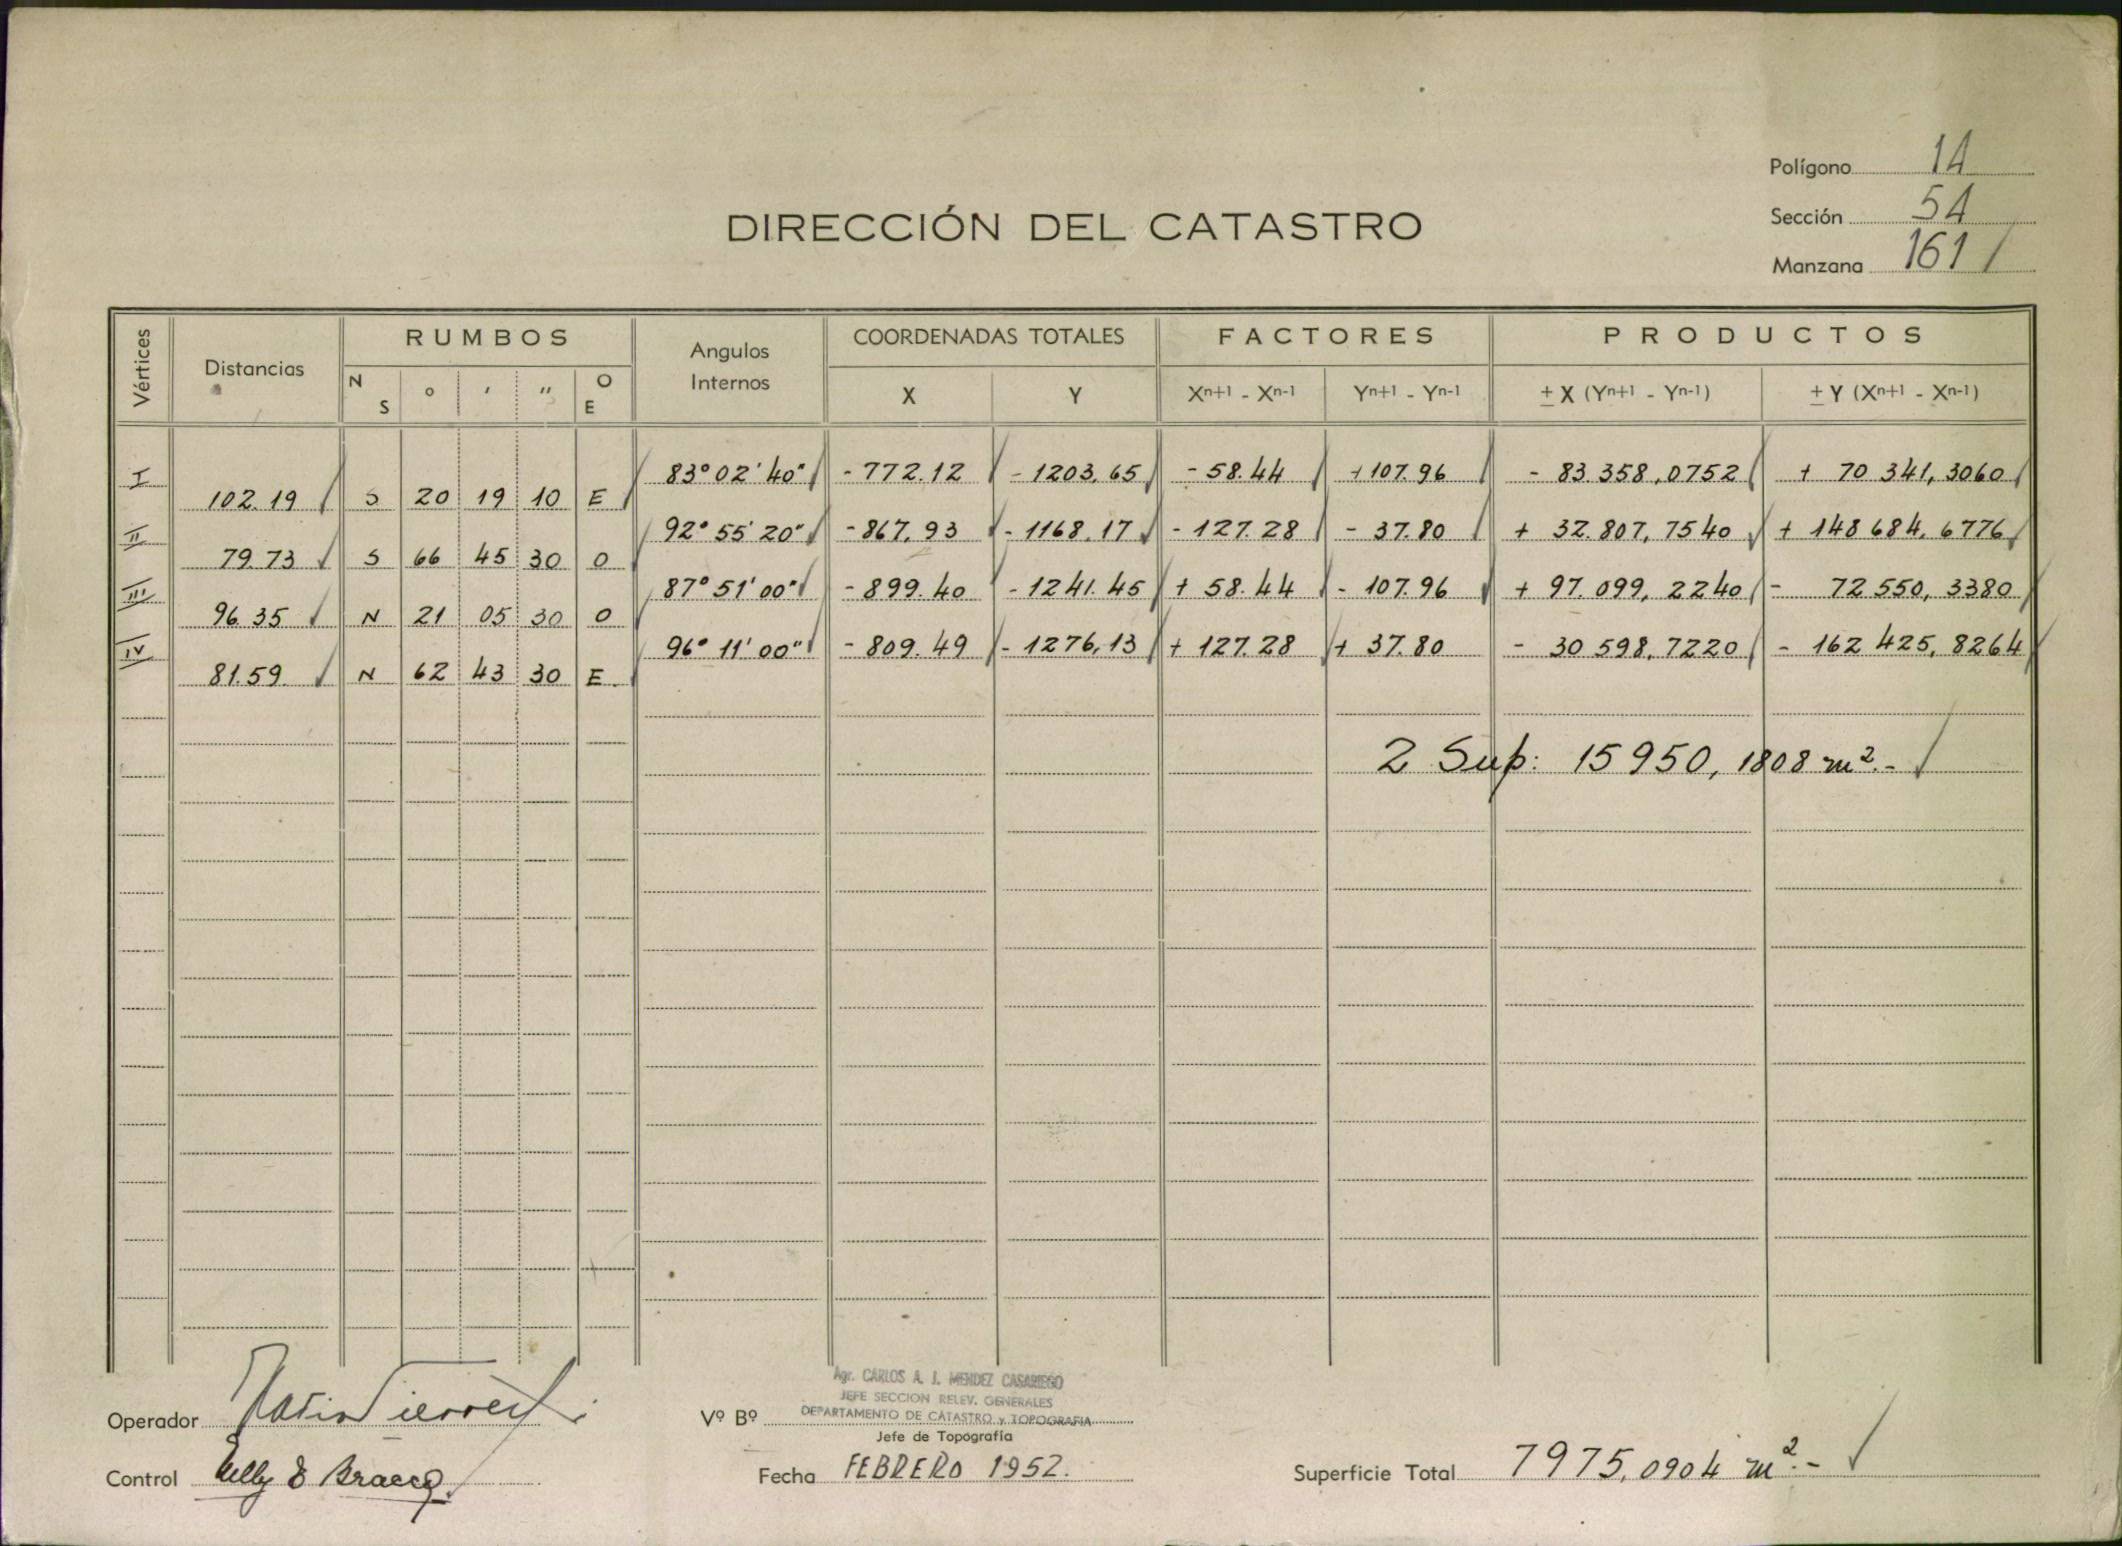 Polígono 14
Sección 54
Manzana 161
DIRECCIÓN DEL CATASTRO
Vértices Distancias RUMBOS Angulos Internos COORDENADAS TOTALES FACTORES PRODUCTOS
N S ° ' " O E X Y Xn+1 - Xn-1 Yn+1 - Yn-1 ± X (Yn+1 - Yn-1) ± Y (Xn+1 - Xn-1)
I 83° 02' 40" - 772.12 - 1203,65 - 58.44 + 107.96 - 83 358,0752 + 70 341,3060
102.19 S 20 19 10 E
II 92° 55' 20" - 867,93 - 1168,17 - 127.28 - 37.80 + 32.807,7540 + 148 684,6776
79.73 S 66 45 30 O
III 87° 51' 00" - 899.40 - 1241.45 + 58.44 - 107.96 + 97.099,2240 - 72 550,3380
96.35 N 21 05 30 O
IV 96° 11' 00" - 809.49 - 1276,13 + 127.28 + 37.80 - 30 598,7220 - 162 425,8264
81.59 N 62 43 30 E
2 Sup: 15950,1808 m².-
Agr. CARLOS A. J. MENDEZ CASARIEGO
JEFE SECCION RELEV. GENERALES
DEPARTAMENTO DE CATASTRO y TOPOGRAFIA
Operador Vº Bº
Jefe de Topografía
Control Nelly E Bracco Fecha FEBRERO 1952. Superficie Total 7975,0904 m².-